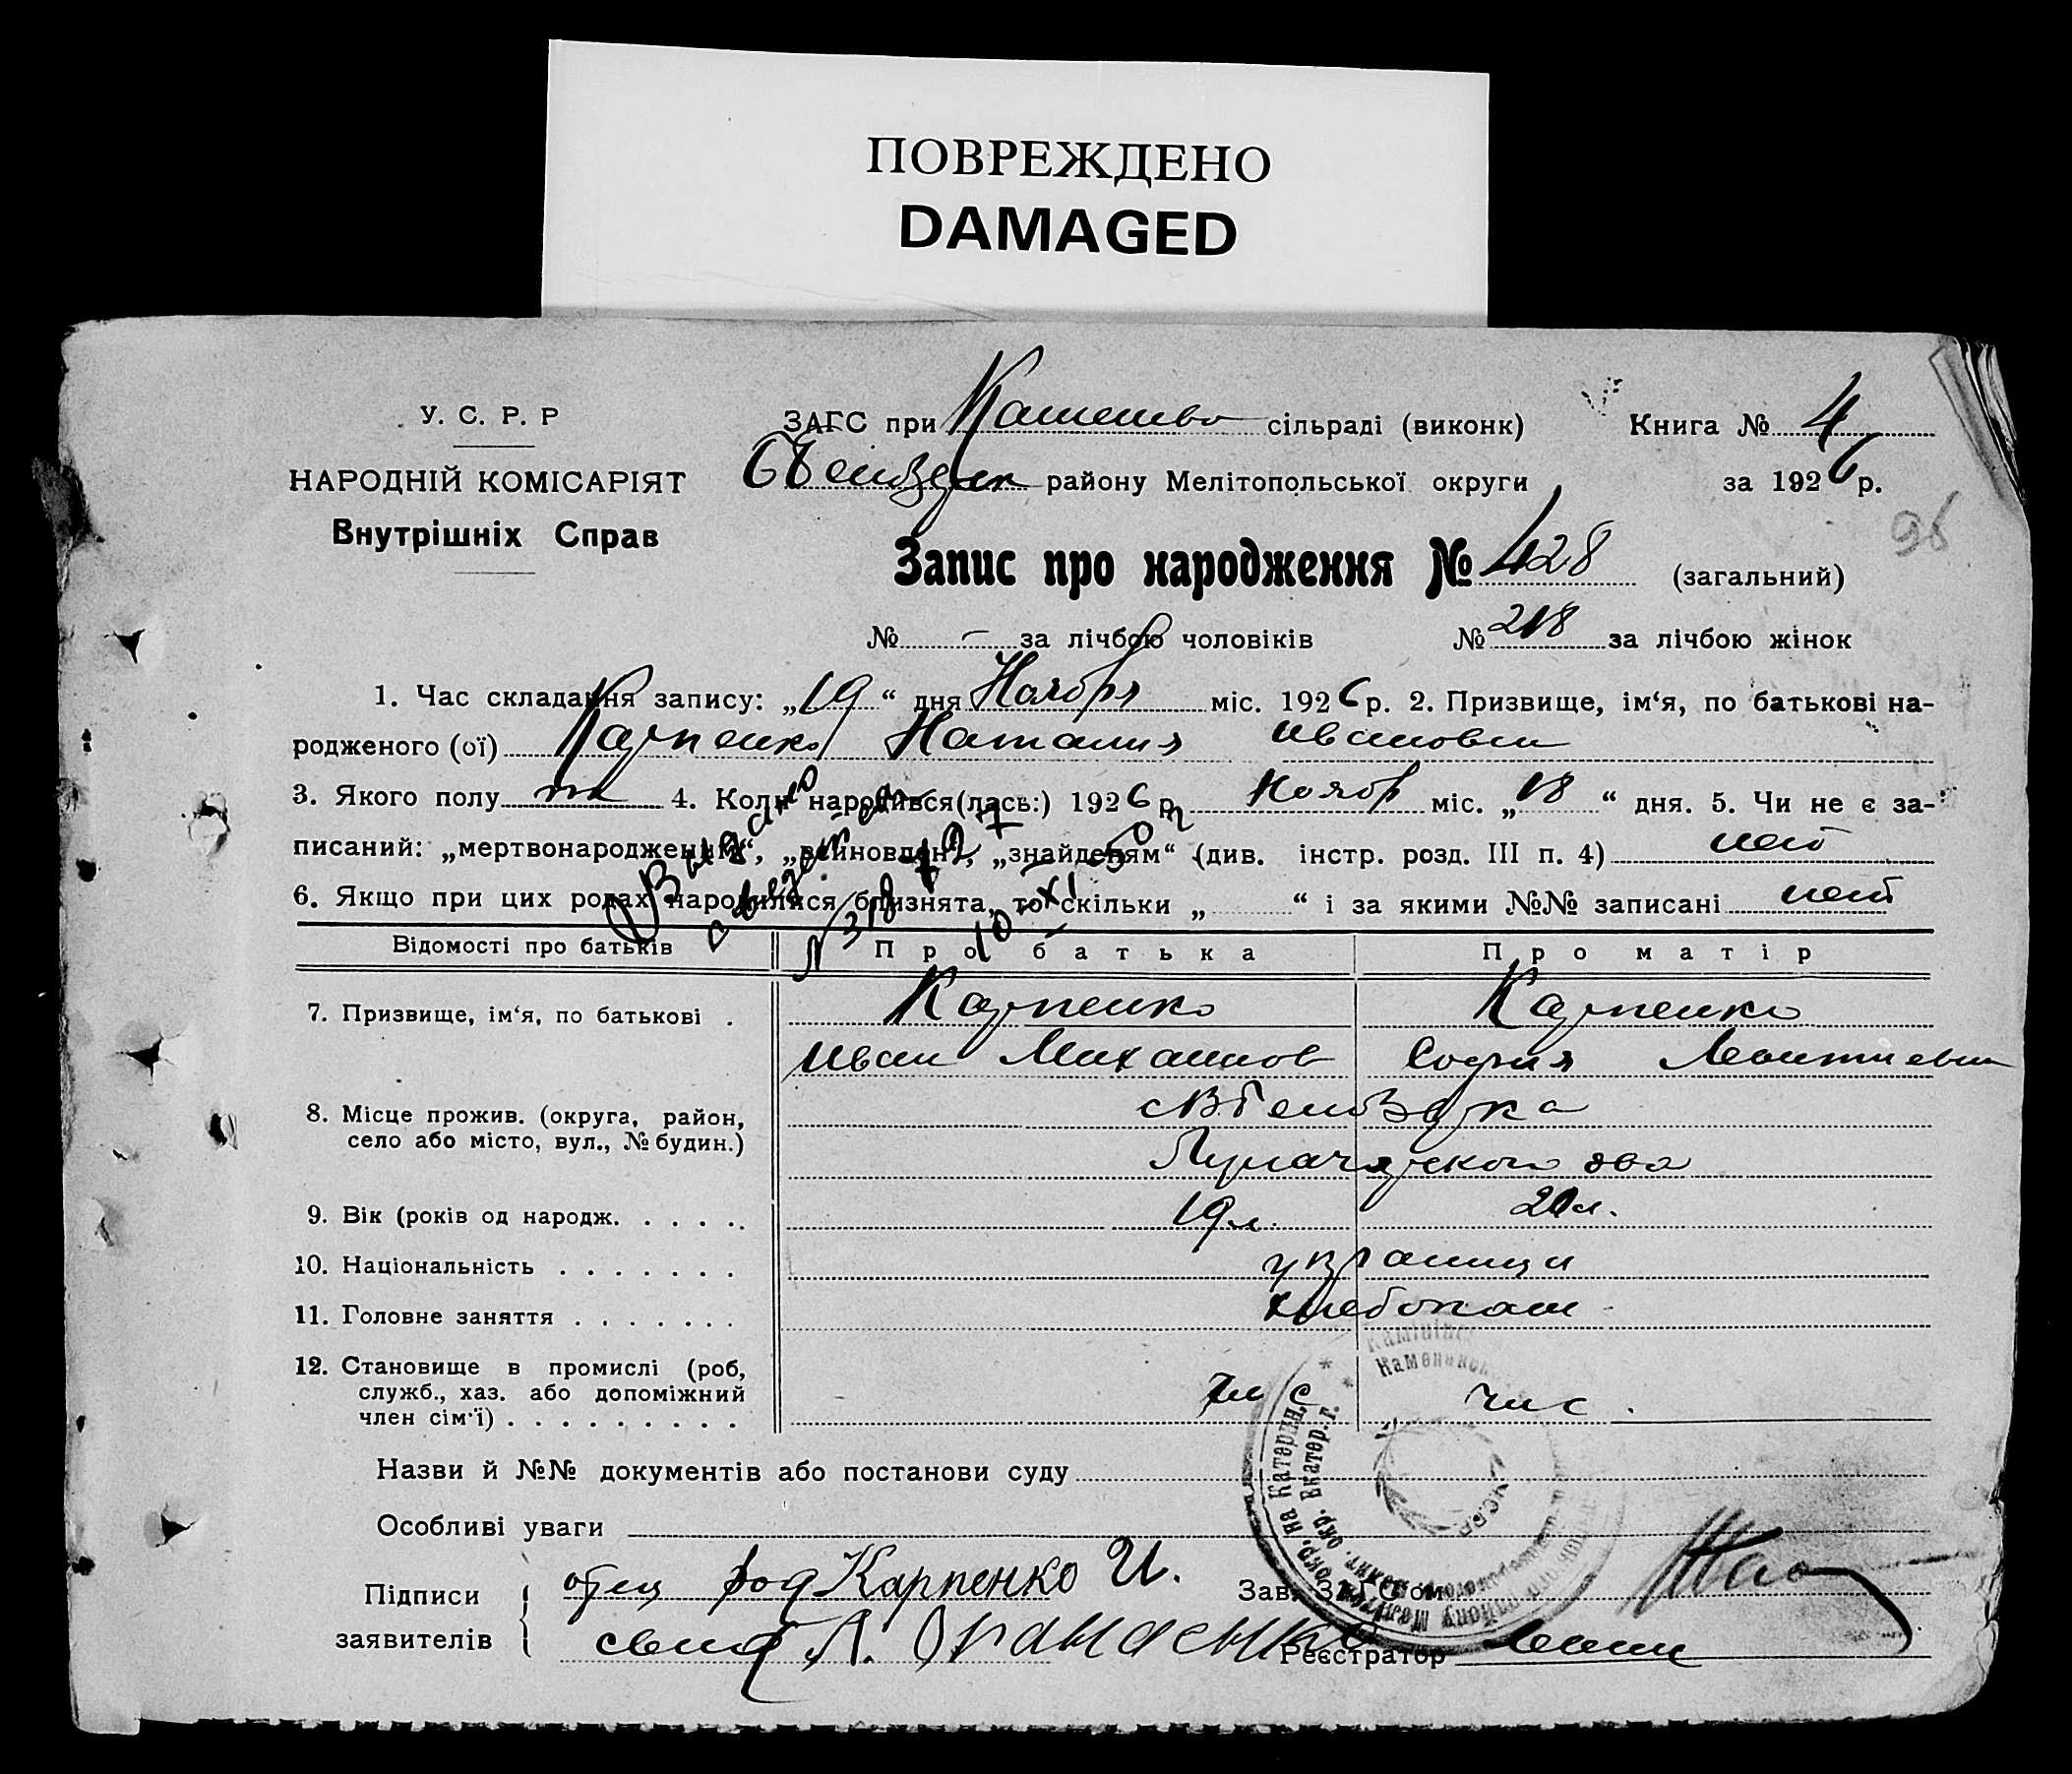 ПОВРЕЖДЕНО
DAMAGED
У. С. Р. Р
НАРОДНІЙ КОМІСАРІЯТ
Внутрішніх Справ
ЗАГС при сільраді (виконк) Книга № 4
району Мелітопольської округи за 1926 р.
96
Запис про народження № 428 (загальний)
№ – за лічбою чоловіків № 218 за лічбою жінок
1. Час складання запису: „19“ дня Ноября міс. 1926 р. 2. Призвище, ім‘я, по батькові на-
родженого (ої) Карпенко Наталия Ивановна
3. Якого полу 4. Коли народився(лась:) 1926 р. Ноябр міс. „18“ дня. 5. Чи не є за-
писаний: „мертвонародженим“, „всиновлен“, „знайденям“ (див. інстр. розд. III п. 4) нет
6. Якщо при цих родах народилися близнята, то скільки „ “ і за якими №№ записані нет
Выдано
Відомості про батьків Про батька Про матір
7. Призвище, ім‘я, по батькові . Карпенко Карпенко
Иван Михайлов София Леонтиевна
8. Місце прожив. (округа, район,
село або місто, вул., № будин.)
9. Вік (років од народж. . . . . . 19 л. 20 л.
10. Національність . . . . . . . украинцы
11. Головне заняття . . . . . . . хлебопаш
12. Становище в промислі (роб,
служб., хаз. або допоміжний
член сім‘ї) . . . . . . . . . чл с чл с .
Назви й №№ документів або постанови суду
Особливі уваги
Підписи заявителів отец Карпенко И. Зав. ЗАГСом
Реєстратор